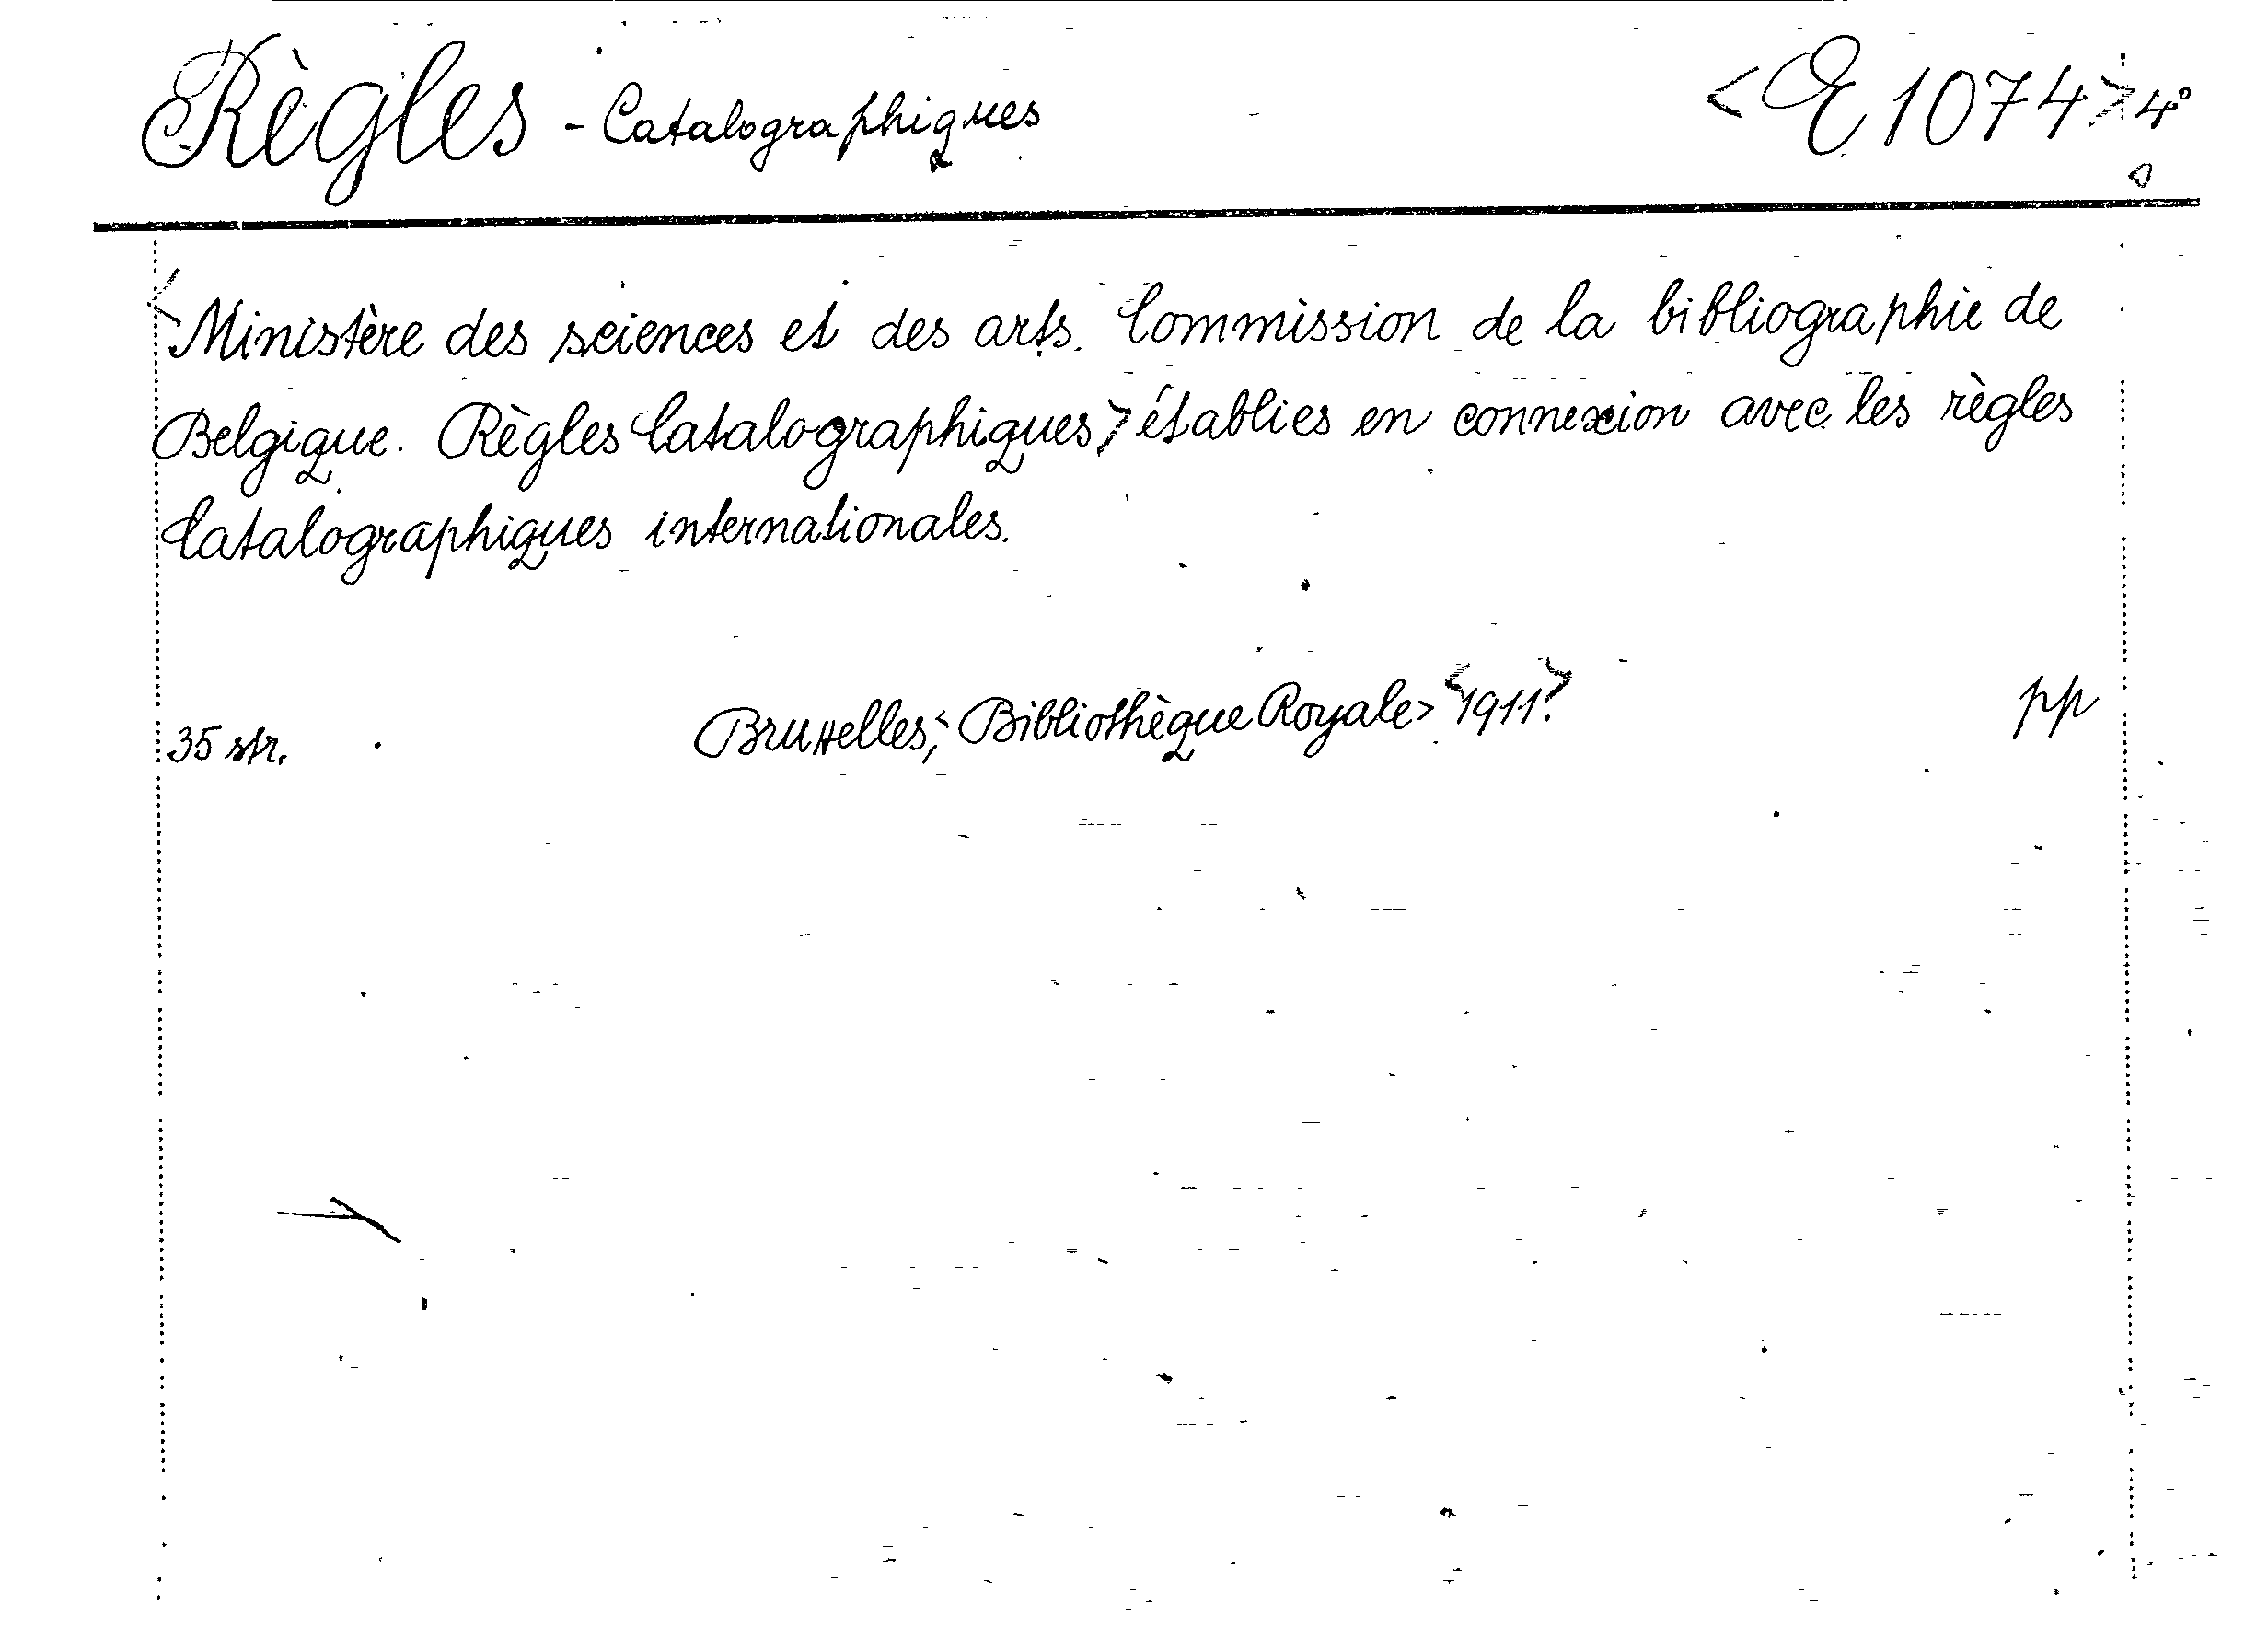 Règles - Catalographiques <E 1074> 4°
<Ministère des sciences et des arts. Commission de la bibliographie de
Belgique. Règles Catalographiques> établies en connexion avec les règles
Catalographiques internationales.
35 str. Bruxelles, <Bibliothèque Royale> <1911>. pp